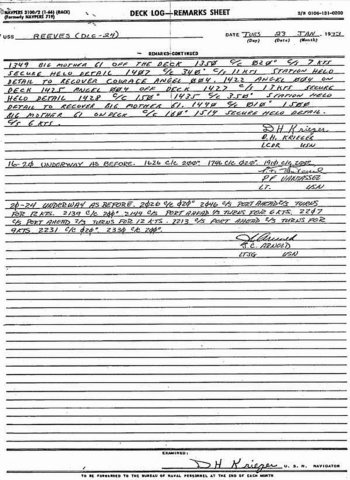 NAVPERS 3100/2 (1-66) (BACK)
(Formerly NAVPERS 719)
DECK LOG—REMARKS SHEET
S/N 0106-131-0200
USS REEVES (DLG-24)
DATE TUES 23 JAN 1973
(Day) (Date) (Month)
REMARKS-CONTINUED
1349 BIG MOTHER 61 OFF THE DECK 1350 C/C 020° C/S 7 KTS
SECURE HELO DETAIL 1407 C/C 340° C/S 11 KTS STATION HELO
DETAIL TO RECOVER COURAGE ANGEL 004. 1422 ANGEL 004 ON
DECK 1425 ANGEL 004 OFF DECK 1427 C/S 17 KTS SECURE
HELO DETAIL 1428 C/C 150° 1435 C/C 350° STATION HELO
DETAIL TO RECOVER BIG MOTHER 61. 1440 C/C 010° 1500
BIG MOTHER 61 ON DECK C/C 160° 1514 SECURE HELO DETAIL.
C/S 6 KTS.
D H Krieger
D.H. KRIEGER
LCDR USN
16-20 UNDERWAY AS BEFORE. 1626 C/C 200°. 1746 C/C 020°. 1910 C/C
P.F.
LT. USN
20-24 UNDERWAY AS BEFORE. 2020 C/C 020° 2046 C/S PORT AHEAD 2/3 TURNS
FOR 12 KTS. 2139 C/C 200°. 2149 C/S PORT AHEAD 1/3 TURNS FOR 6 KTS. 2207
C/S PORT AHEAD 2/3 TURNS FOR 12 KTS. 2213 C/S PORT AHEAD 2/3 TURNS FOR
9 KTS 2231 C/C 020°. 2330 C/C 200°.
ARNOLD
LTJG USN
EXAMINED:
D H Krieger U. S. N. NAVIGATOR
TO BE FORWARDED TO THE BUREAU OF NAVAL PERSONNEL AT THE END OF EACH MONTH